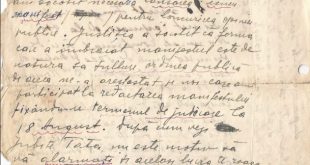 am socotit necesar
manifest pentru lămurirea opiniei
publice. Justiția a socotit că forma
care a îmbrăcat manifestul este de
natură să tulbure ordinea publică
de aceea ne-a arestat pe noi care am
participat la redactarea manifestului
fixându-ne termenul de judecare la
18 August. După cum vezi
iubite Tată, nu este motiv să
vă alarmați și același lucru te rog